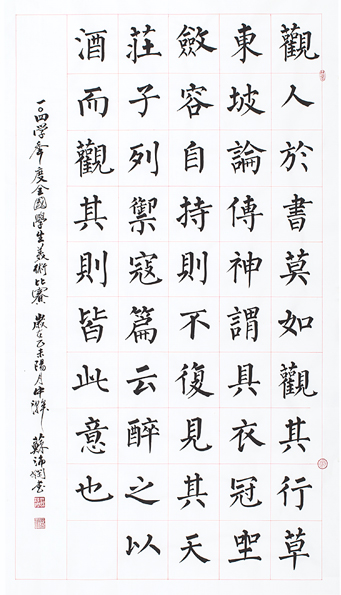 觀人於書莫如觀其行草
東坡論傳神謂具衣冠坐
斂容自持則不復見其天
莊子列禦寇篇云醉之以
酒而觀其則皆此意也
一〇四学年度全國學生美術比賽 歲在乙未陽月中澣 蘇沛書